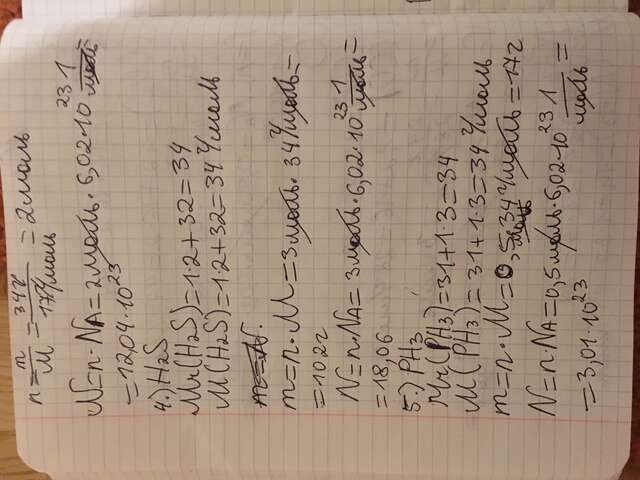 n = m/M = 34г/17г/моль = 2моль
N=n·NA=2моль·6,02·10²³ 1/моль=
=12,04·10²³
4.)H2S
Mr(H2S)=1·2+32=34
M(H2S)=1·2+32=34 г/моль
m=N.
m=n·M=3моль·34 г/моль=
=102г
N=n·NA=3моль·6,02·10²³ 1/моль=
=18,06
5.)PH3
Mr(PH3)=31+1·3=34
M(PH3)=31+1·3=34 г/моль
m=n·M=0,5моль·34 г/моль=17г
N=n·NA=0,5моль·6,02·10²³ 1/моль=
=3,01·10²³